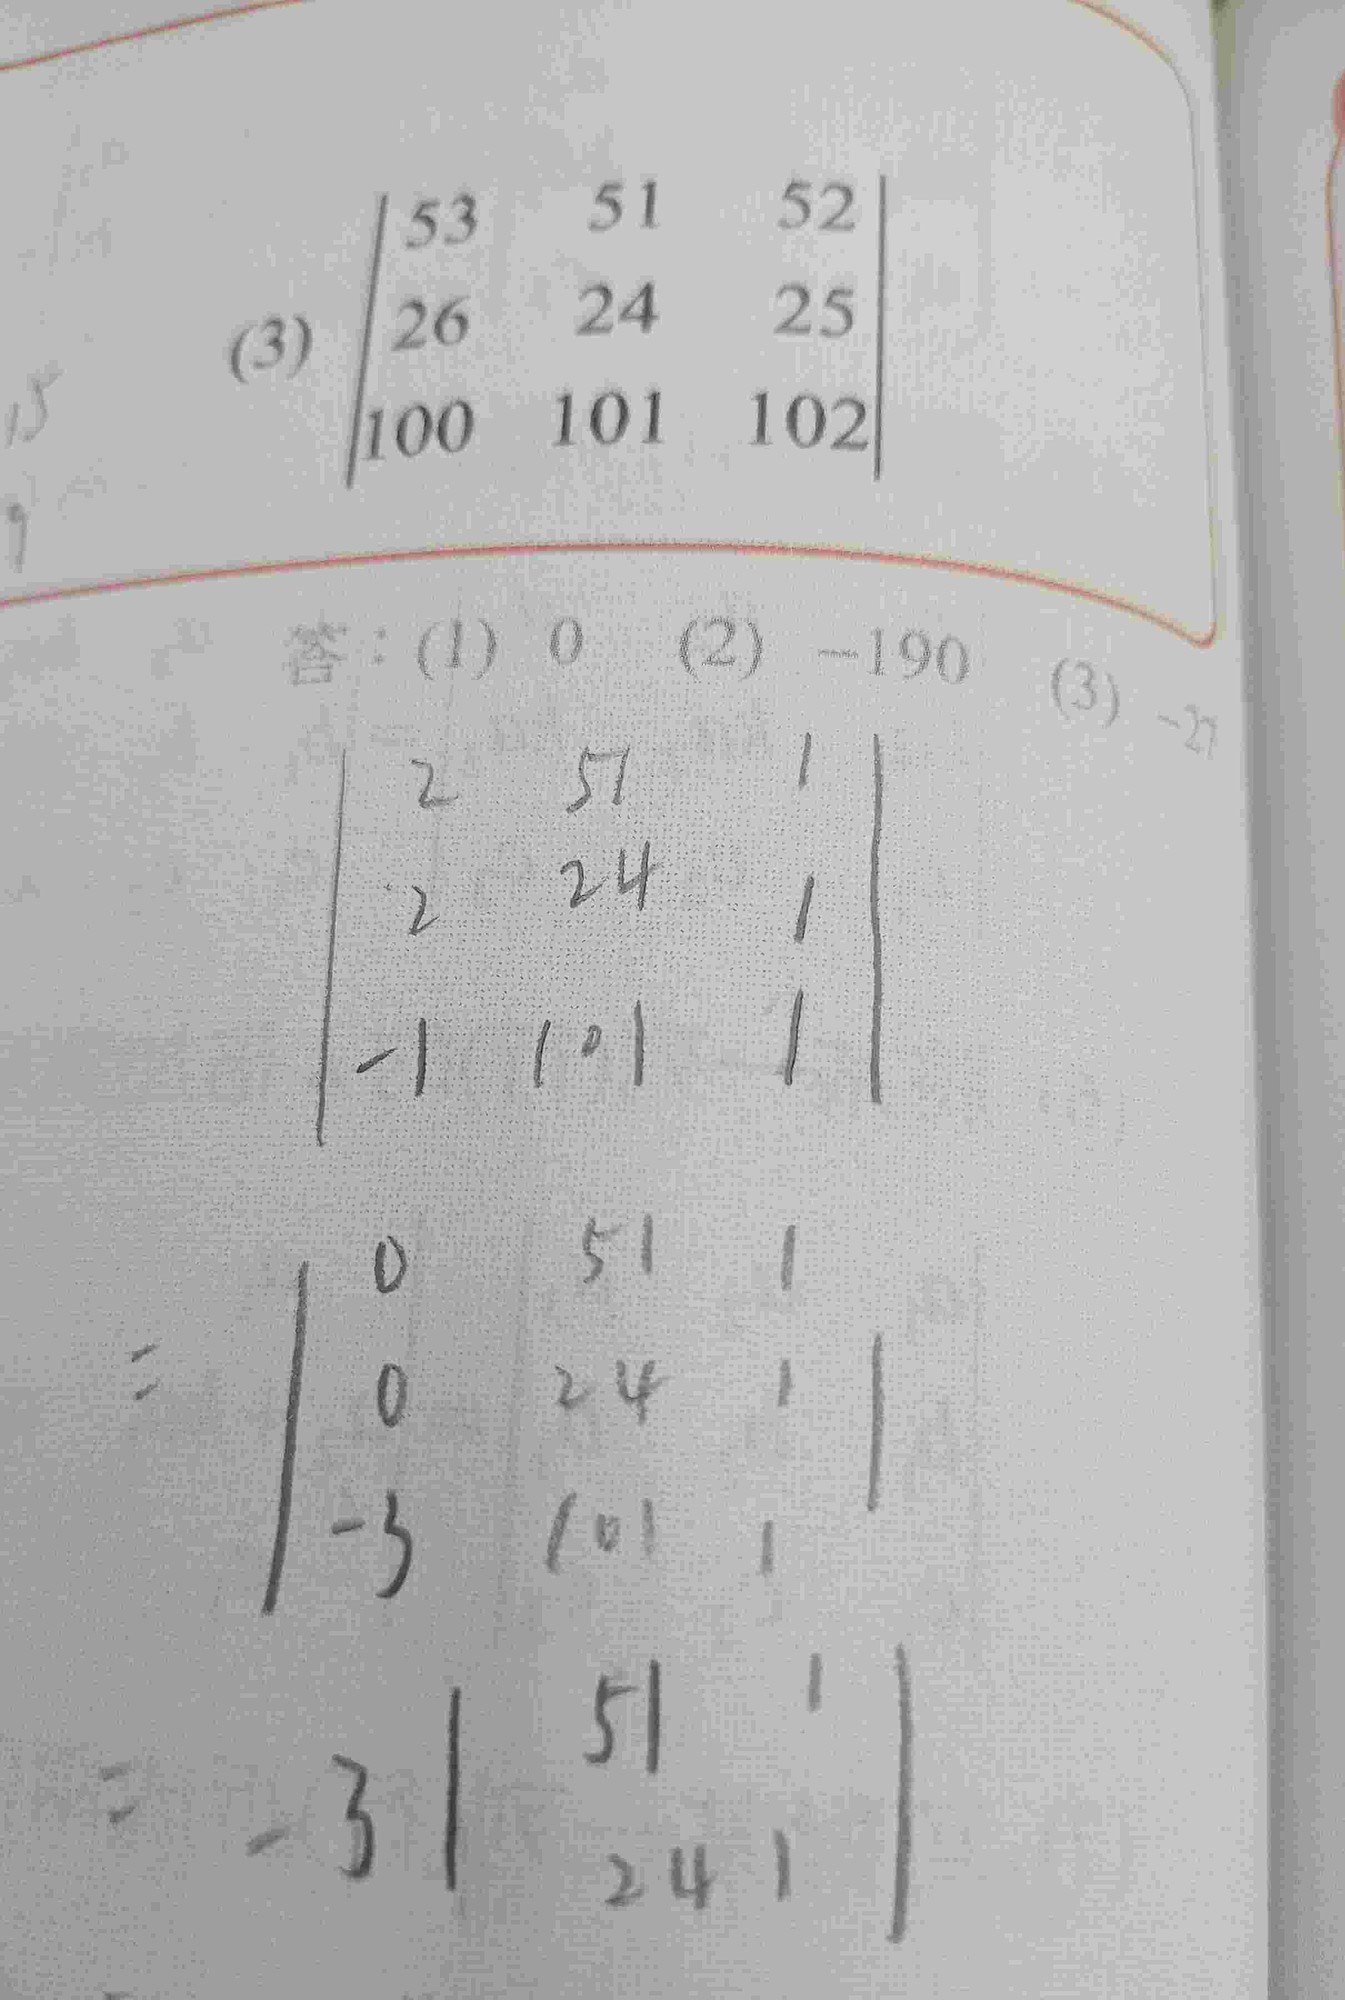 53 51 52
(3) 26 24 25
100 101 102
15
9
答：(1) 0 (2) -190 (3) -27
2 51 1
2 24 1
-1 101 1
0 51 1
= 0 24 1
-3 101 1
51 1
= -3
24 1